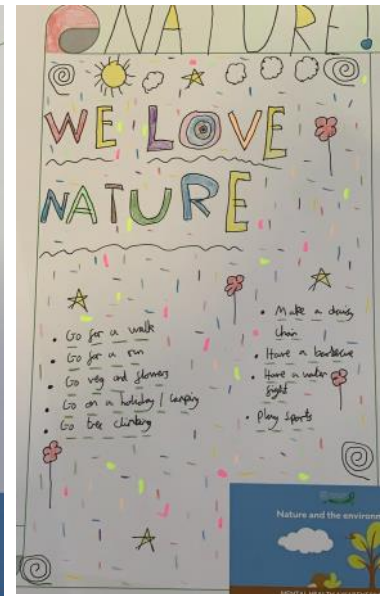 NATURE!
WE LOVE
NATURE
• Go for a walk
• Go for a run
• Go veg and flowers
• Go on a holiday / camping
• Go tree climbing
• Make a daisy
chain
• Have a barbecue
• Have a water
fight
• Play sports
Nature and the environm
MENTAL HEALTH